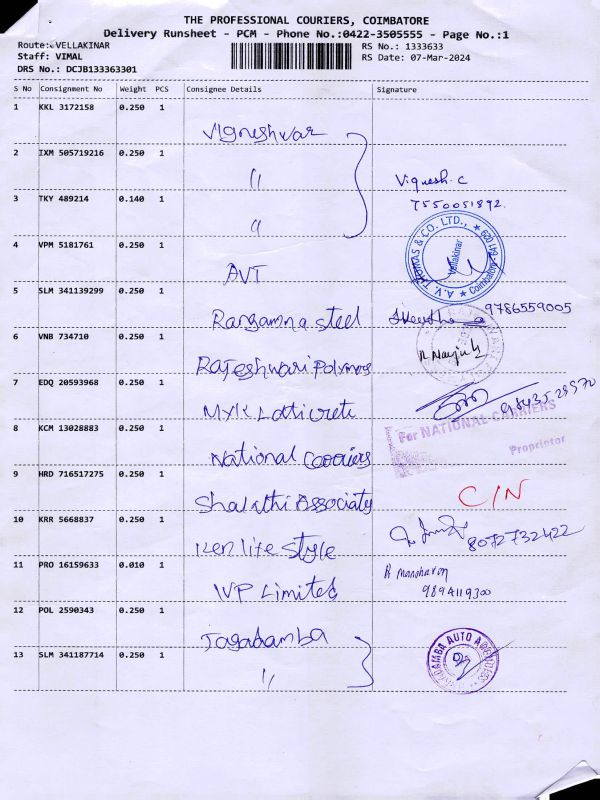 THE PROFESSIONAL COURIERS, COIMBATORE
Delivery Runsheet - PCM - Phone No.:0422-3505555 - Page No.:1
Route: VELLAKINAR RS No.: 1333633
Staff: VIMAL RS Date: 07-Mar-2024
DRS No.: DCJB133363301
S No Consignment No Weight PCS Consignee Details Signature
1 KKL 3172158 0.250 1
Vigneshwar
2 IXM 505719216 0.250 1
" Vignesh.C
3 TKY 489214 0.140 1 7550051892.
"
A.V. THOMAS & CO. LTD., Vellakinar Coimbatore 641 029
4 VPM 5181761 0.250 1
AVT
5 SLM 341139299 0.250 1
Rangamna steel 9786559005
6 VNB 734710 0.250 1
Rajeshwari Polymers
7 EDQ 20593968 0.250 1
Myk Laticrete
8 KCM 13028883 0.250 1
For NATIONAL CARRIERS
National Carriers Proprietor
9 HRD 716517275 0.250 1
Shakthi Associaty C/N
10 KRR 5668837 0.250 1
Ken life style 8072732422
11 PRO 16159633 0.010 1 R Manoharan
WP Limited 9894119300
12 POL 2590343 0.250 1
Jagadamba
13 SLM 341187714 0.250 1
" JAGADAMBA AUTO AGENCIES